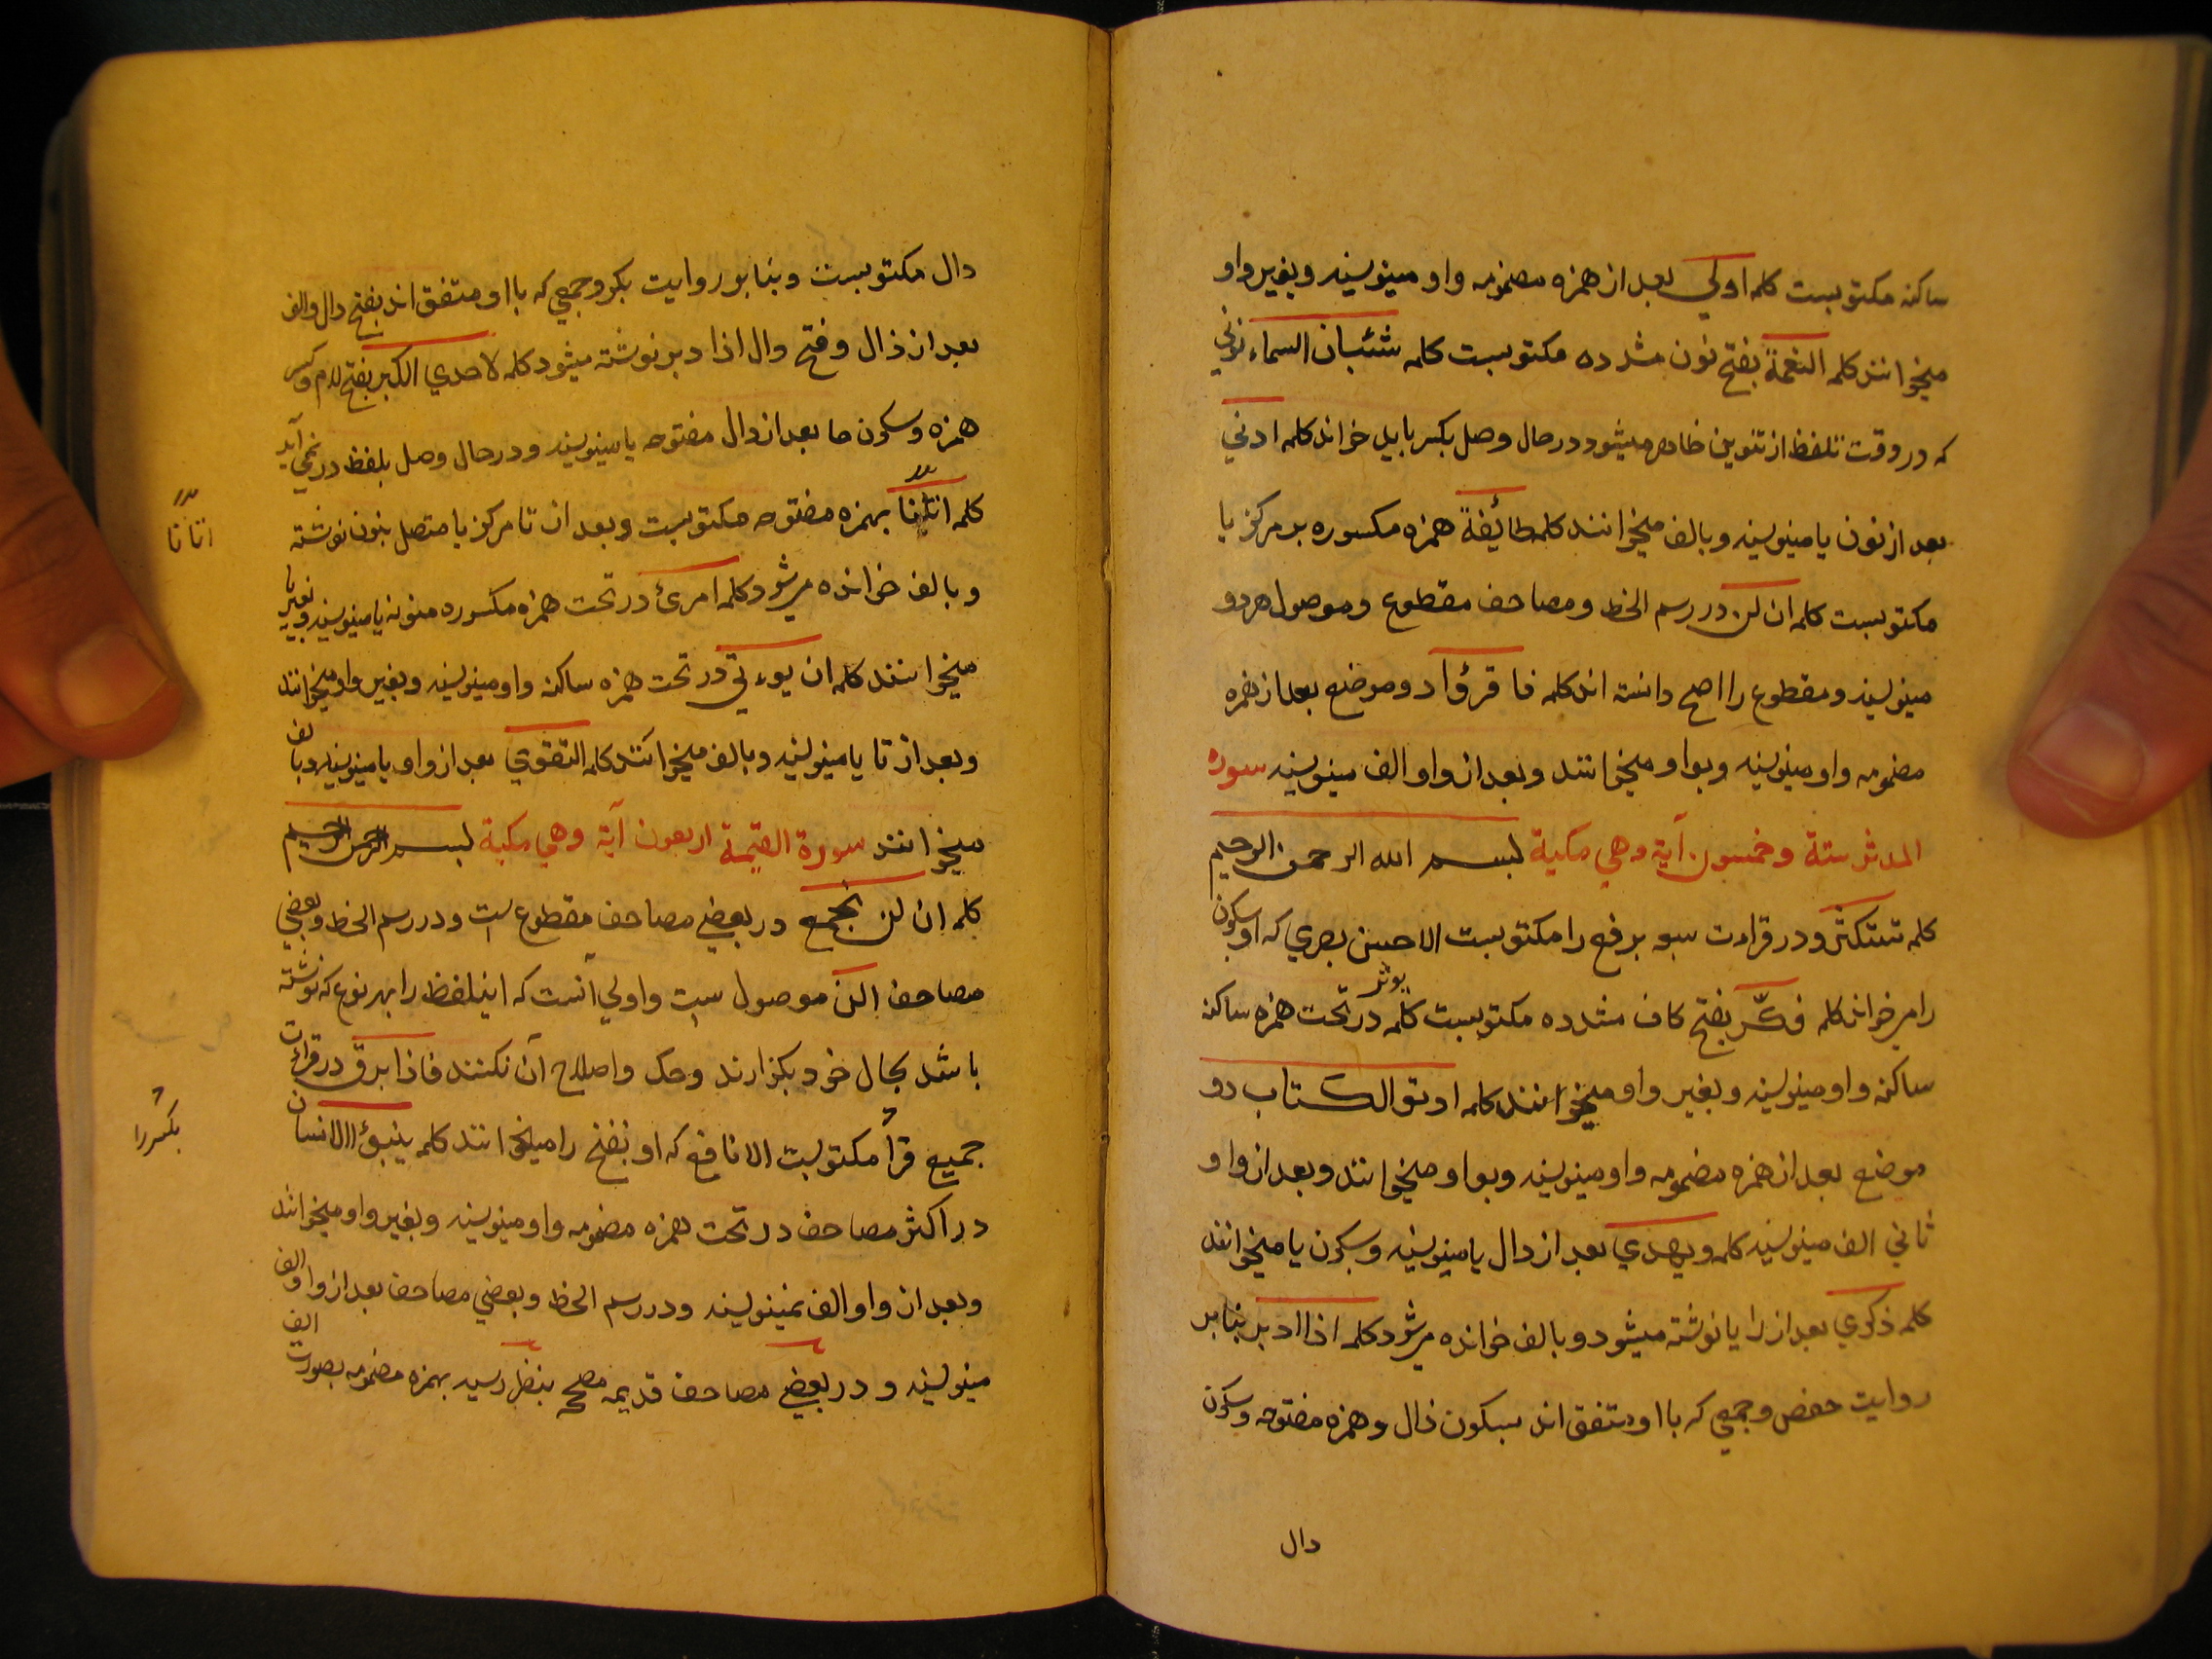 ساكنه مكتوبست كلمه اولي بعد از همزه مضمومه واو مينويسند وبغير واو
ميخوانند كلمه النعمة بفتح نون مشدده مكتوبست كلمه شئبان السماء نوني
كه در وقت تلفظ از تنوين ظاهر ميشود در حال وصل بكسر بايد خواند كلمه ادني
بعد از نون يا مينويسند وبالف ميخوانند كلمه طائفة همزه مكسوره بر مركز يا
مكتوبست كلمه ان لن در رسم الخط ومصاحف مقطوع وموصول هر دو
مينويسند ومقطوع را اصح دانسته اند كلمه فاقرؤا دو موضع بعد از همزه
مضمومه واو مينويسند وبواو ميخوانند وبعد از واو الف مينويسند سوره
المدثر ستة وخمسون آية وهي مكية بسم الله الرحمن الرحيم
كلمه تستكثر ودر قراءت سبو برفع را مكتوبست الا حسن بصري كه او بسكون
را مي خواند كلمه فكّر بفتح كاف مشدده مكتوبست كلمه يوثر در تحت همزه ساكنه
ساكنه واو مينويسند وبغير واو ميخوانند كلمه اوتو الكتاب دو
موضع بعد از همزه مضمومه واو مينويسند وبواو ميخوانند وبعد از واو
ثاني الف مينويسند كلمه ويهدي بعد از دال يا مينويسند وبسكون يا ميخوانند
كلمه ذكري بعد از را يا نوشته ميشود وبالف خوانده ميشود كلمه اذا ادبر بنا بر
روايت حفص وجمعي كه با او متفق اند بسكون ذال وهمزه مفتوحه وسكون
دال
دال مكتوبست وبنا بور روايت بكر وجمعي كه با او متفق اند بفتح دال والف
بعد از ذال وفتح دال اذا دبر نوشته ميشود كلمه لاحدي الكبر بفتح لام وكسر
همزه وسكون حا بعد از دال مفتوحه يا مينويسند ودر حال وصل بلفظ در نمي آيد
كلمه اتانا بهمزه مفتوحه مكتوبست وبعد از تا مركز يا متصل بنون نوشته
اتانا
وبالف خوانده ميشود كلمه امرئ در تحت همزه مكسوره منونه يا مينويسند وبغير يا
ميخوانند كلمه ان يوءتي در تحت همزه ساكنه واو مينويسند وبغير واو ميخوانند
وبعد از تا يا مينويسند وبالف ميخوانند كلمه التقوي بعد از واو يا مينويسند وبالف
ميخوانند سورة القيمة اربعون آية وهي مكية بسم الرحمن الرحيم
كلمه ان لن نجمع در بعضي مصاحف مقطوع ست ودر رسم الخط وبعضي
مصاحف الن موصول ست واولي آنست كه اين لفظ را بهر نوع كه نوشته
باشد بحال خود بكزارند وحك واصلاح آن نكنند فاذا برق در قراءت
جميع قرا مكتوبست الا نافع كه او بفتح را ميخوانند كلمه ينبؤ االانسان
بكسر را
در اكثر مصاحف در تحت همزه مضمومه واو مينويسند وبغير واو ميخوانند
وبعد از واو الف نمينويسند ودر رسم الخط وبعضي مصاحف بعد از واو الف
مينويسند ودر بعضي مصاحف قديمه مصلحه بنظر رسيد بهمزه مضمومه بصورت الف